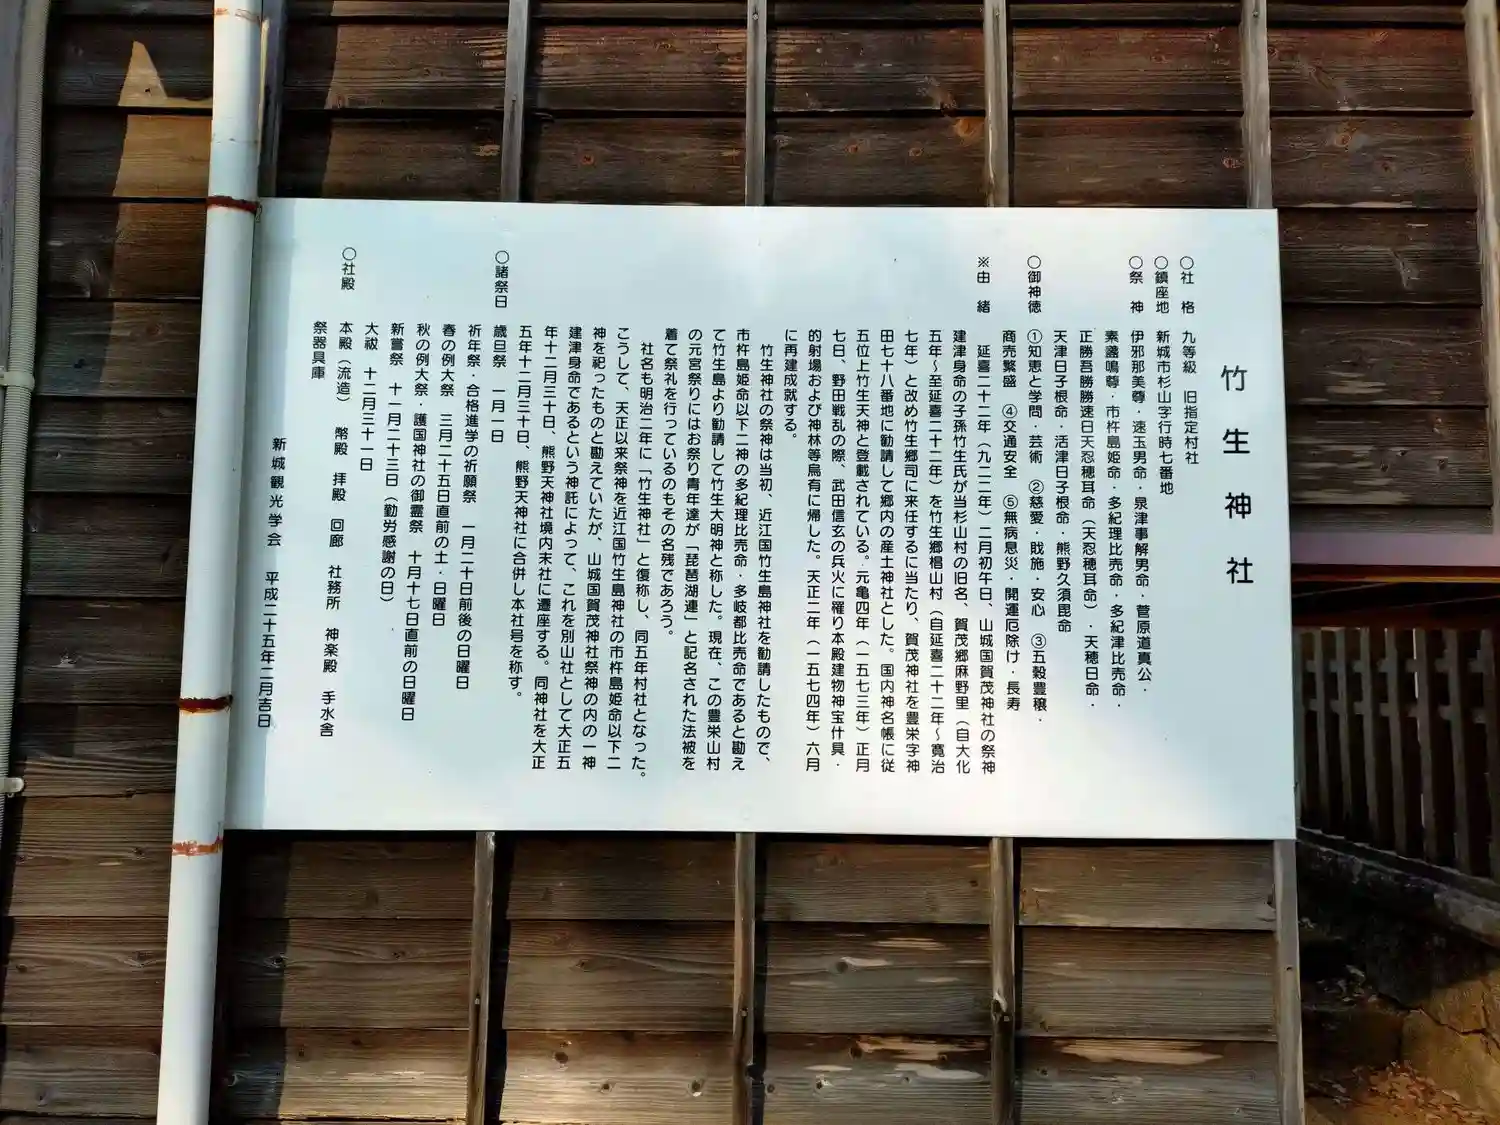 竹生神社
○社　格　九等級　旧指定村社
○鎮座地　新城市杉山字行時七番地
○祭　神　伊邪那美尊・速玉男命・泉津事解男命・菅原道真公・
素盞鳴尊・市杵島姫命・多紀理比売命・多紀津比売命・
正勝吾勝勝速日天忍穂耳命（天忍穂耳命）・天穂日命・
天津日子根命・活津日子根命・熊野久須毘命
○御神徳　①知恵と学問・芸術　②慈愛・戝施・安心　③五穀豊穣・
商売繁盛　④交通安全　⑤無病息災・開運厄除け・長寿
※由　緒　延喜二十二年（九二二年）二月初午日、山城国賀茂神社の祭神
建津身命の子孫竹生氏が当杉山村の旧名、賀茂郷麻野里（自大化
五年～至延喜二十二年）を竹生郷椙山村（自延喜二十二年～寛治
七年）と改め竹生郷司に来任するに当たり、賀茂神社を豊栄字神
田七十八番地に勧請して郷内の産土神社とした。国内神名帳に従
五位上竹生天神と登載されている。元亀四年（一五七三年）正月
七日、野田戦乱の際、武田信玄の兵火に罹り本殿建物神宝什具・
的射場および神林等烏有に帰した。天正二年（一五七四年）六月
に再建成就する。
竹生神社の祭神は当初、近江国竹生島神社を勧請したもので、
市杵島姫命以下二神の多紀理比売命・多岐都比売命であると勘え
て竹生島より勧請して竹生大明神と称した。現在、この豊栄山村
の元宮祭りにはお祭り青年達が「琵琶湖連」と記名された法被を
着て祭礼を行っているのもその名残であろう。
社名も明治二年に「竹生神社」と復称し、同五年村社となった。
こうして、天正以来祭神を近江国竹生島神社の市杵島姫命以下二
神を祀ったものと勘えていたが、山城国賀茂神社祭神の内の一神
建津身命であるという神託によって、これを別山社として大正五
年十二月三十日、熊野天神社境内末社に遷座する。同神社を大正
五年十二月三十日、熊野天神社に合併し本社号を称す。
○諸祭日　歳旦祭　一月一日
祈年祭・合格進学の祈願祭　一月二十日前後の日曜日
春の例大祭　三月二十五日直前の土・日曜日
秋の例大祭・護国神社の御霊祭　十月十七日直前の日曜日
新嘗祭　十一月二十三日（勤労感謝の日）
大祓　十二月三十一日
○社殿　本殿（流造）　幣殿　拝殿　回廊　社務所　神楽殿　手水舎
祭器具庫
新城観光学会　平成二十五年二月吉日